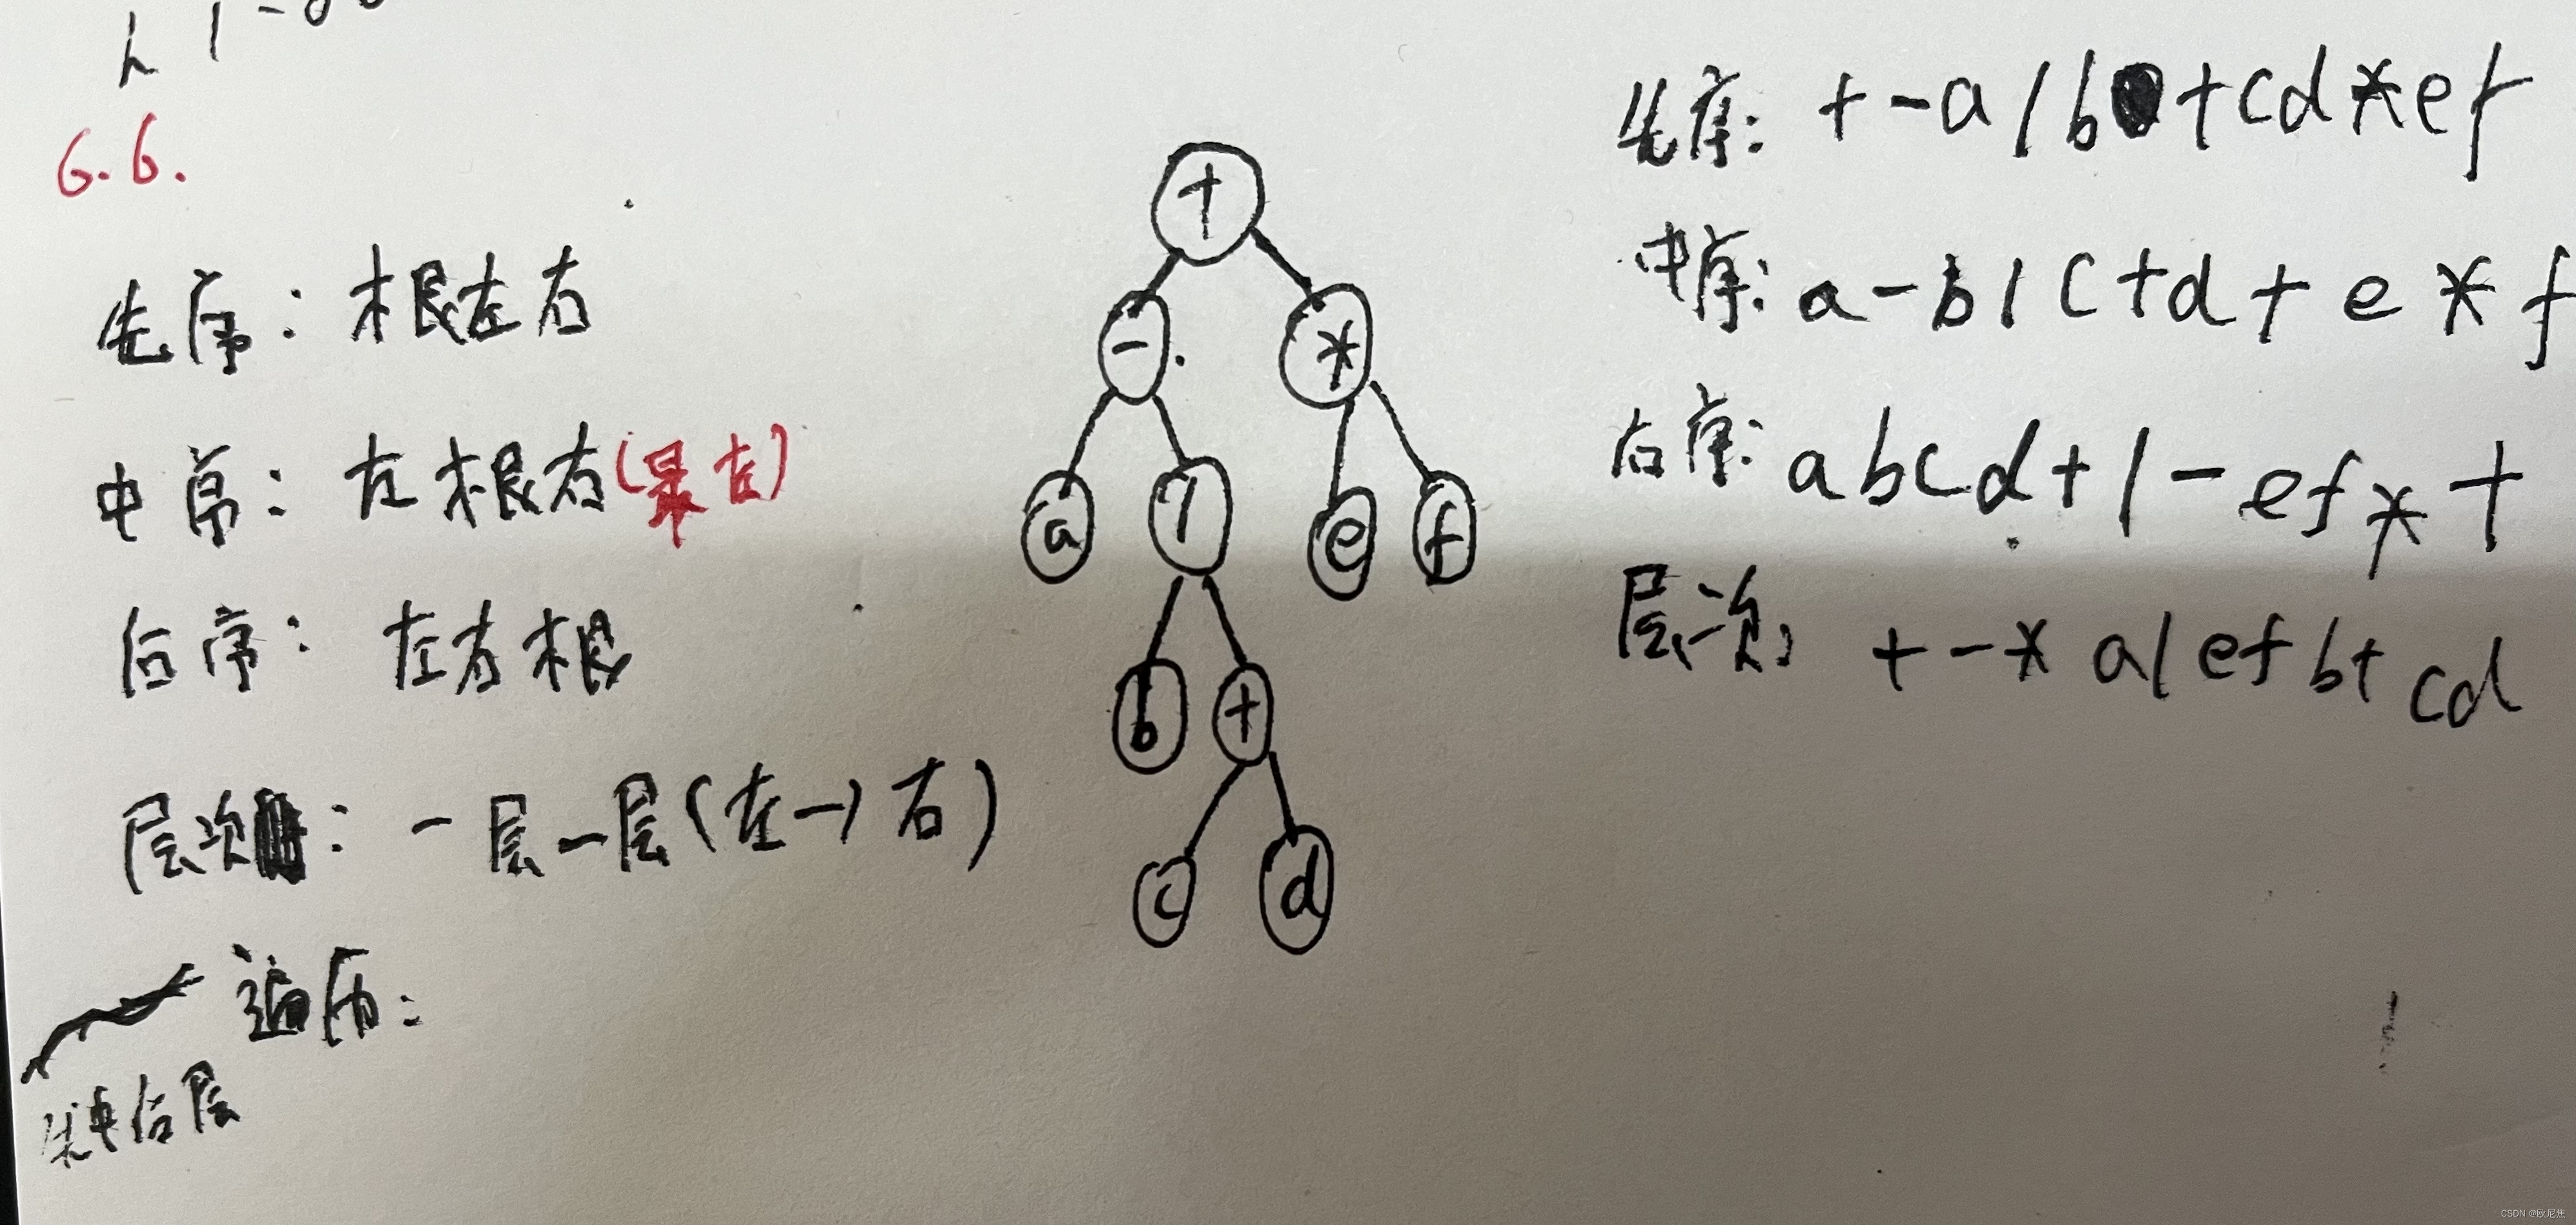 6.6.
先序：根左右
中序：左根右(最左)
后序：左右根
层次：一层一层(左→右)
遍历：
先中后层
+
- *
a / e f
b +
c d
先序：+-a/b+cd*ef
中序：a-b/c+d+e*f
后序：abcd+/-ef*+
层次：+-*a/efb+cd
CSDN @欧尼焦